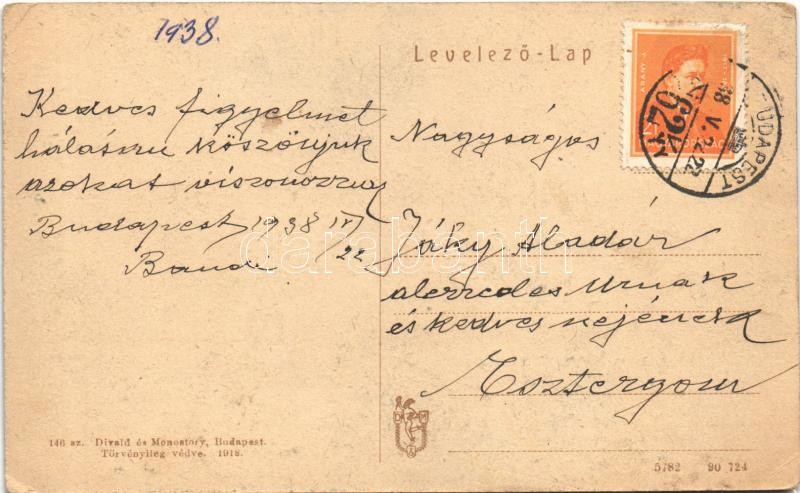 1938.
Levelező-Lap
Kedves figyelmet
hálásan köszönjük
azokat viszonozzuk
Budapest 1938 IV/22
Bandi
Nagyságos
Jáky Aladár
alezredes Urnak
és kedves nejének
Esztergom
ARANY J.
BUDAPEST
62
38 V.
darabanth
146 sz. Divald és Monostory, Budapest.
Törvényileg védve. 1918.
D M
5782 90 724